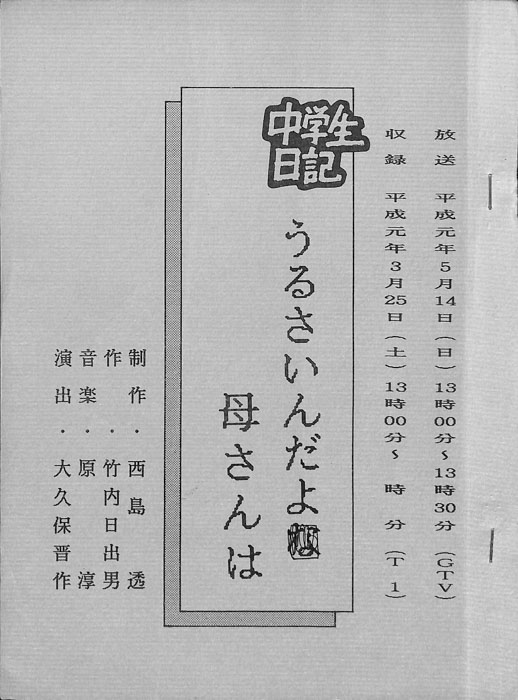 放送 平成元年5月14日(日)13時00分~13時30分(GTV)
収録 平成元年3月25日(土)13時00分~ 時 分(T1)
中学生
日記
うるさいんだよ
母さんは
制作・西島 透
作・竹内日出男
音楽・原 淳
演出・大久保晋作